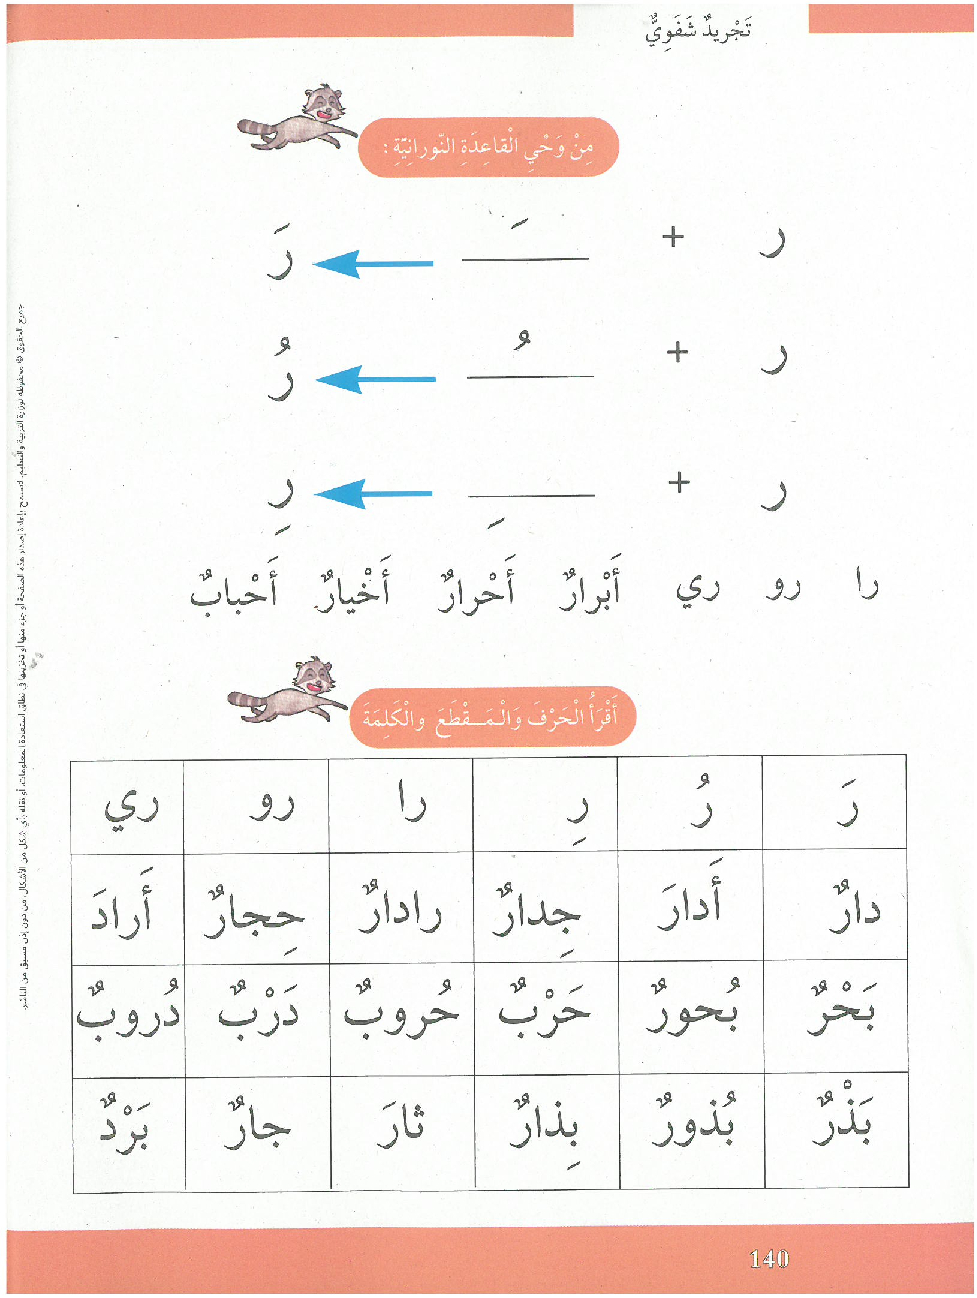 تَجْريدٌ شَفَوِيٌّ
مِنْ وَحْيِ الْقاعِدَةِ النّورانِيَّةِ :
ر + َ رَ
ر + ُ رُ
ر + ِ رِ
را رو ري أَبْرارٌ أَحْرارٌ أَخْيارٌ أَحْبابٌ
أَقْرَأُ الْحَرْفَ وَالْمَقْطَعَ والْكَلِمَةَ
رَ رُ رِ را رو ري
دارٌ أَدارَ جِدارٌ رادارٌ حِجارٌ أَرادَ
بَحْرٌ بُحورٌ حَرْبٌ حُروبٌ دَرْبٌ دُروبٌ
بَذْرٌ بُذورٌ بِذارٌ ثارَ جارٌ بَرْدٌ
جميع الحقوق © محفوظة لوزارة التربية والتعليم. لا يسمح بإعادة إصدار هذه الصفحة أو جزء منها أو تخزينها في نطاق استعادة المعلومات، أو نقله بأي شكل من الأشكال، من دون إذن مسبق من الناشر.
140